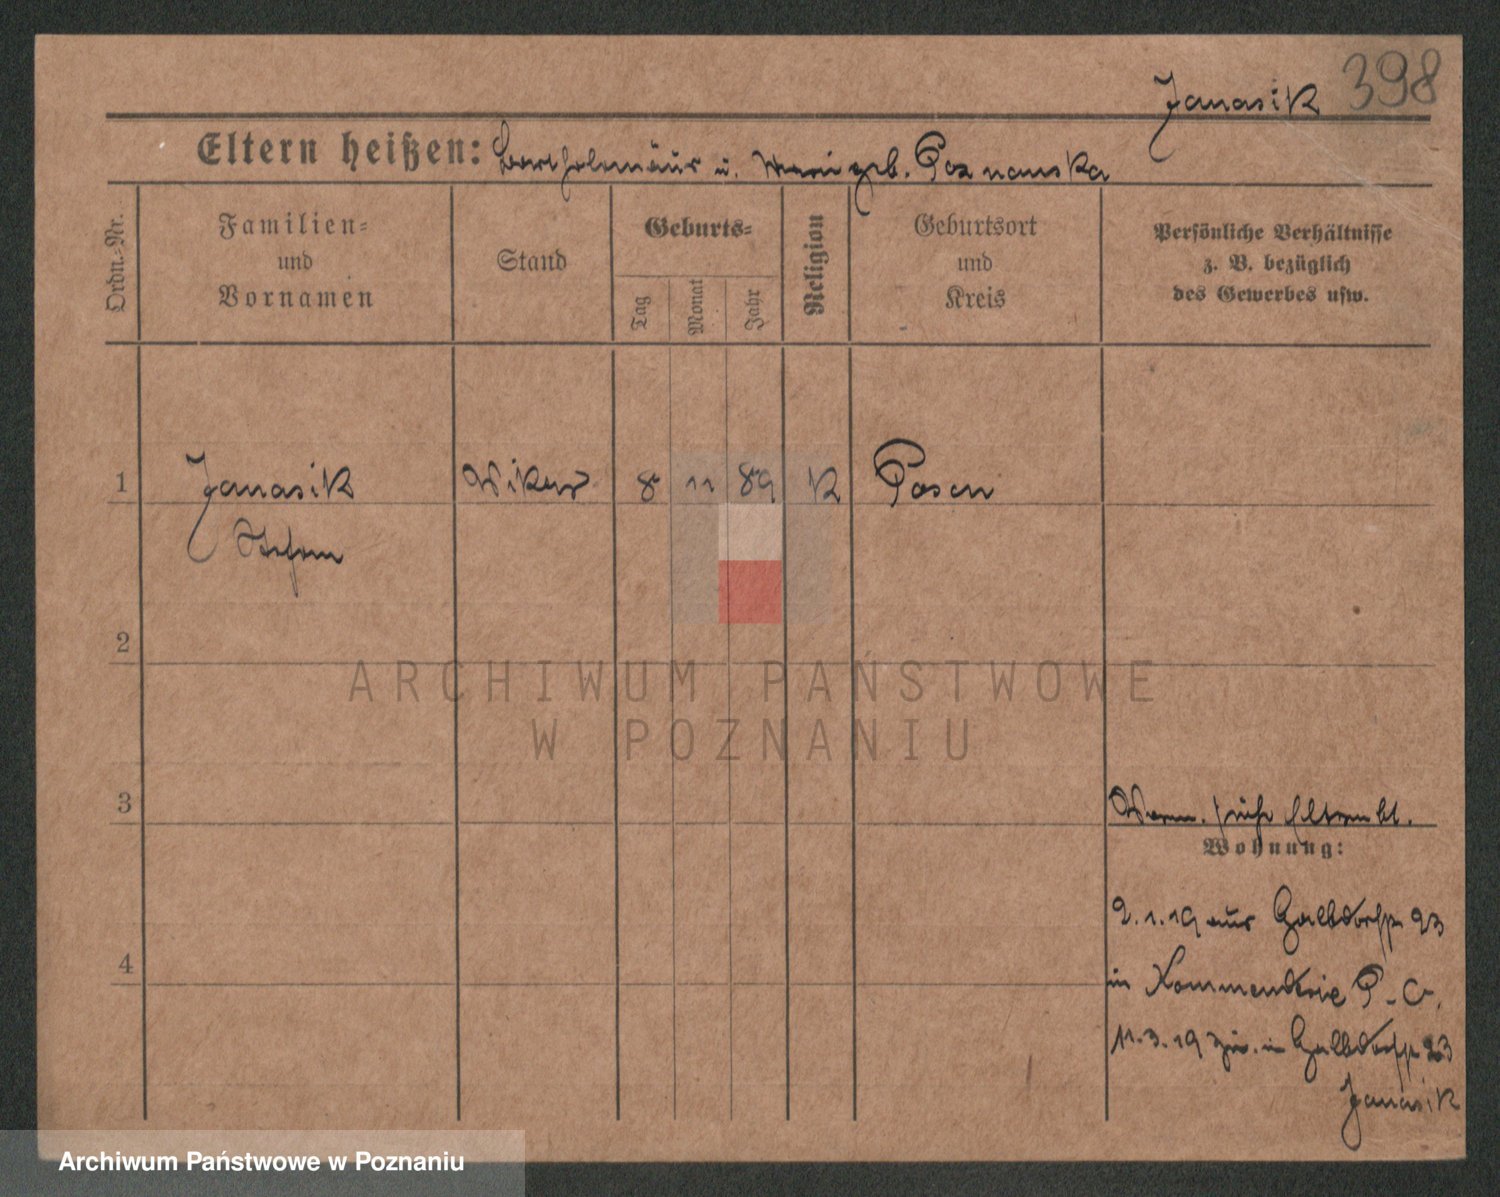 Janasik 398
Eltern heißen: Bartholomäus u. Mari geb. Poznanska
Ordn.-Nr.
Familien-
und
Vornamen
Stand
Geburts-
Tag
Monat
Jahr
Religion
Geburtsort
und
Kreis
Persönliche Verhältnisse
z. B. bezüglich
des Gewerbes usw.
1 Janasik Vikar 8 11 89 K Posen
Stefan
2
3
früh
Wohnung:
2.1.19 aus 23
in Kommenderie P-O.
4
11.3.19 in 23
Janasik
ARCHIWUM PAŃSTWOWE
W POZNANIU
Archiwum Państwowe w Poznaniu